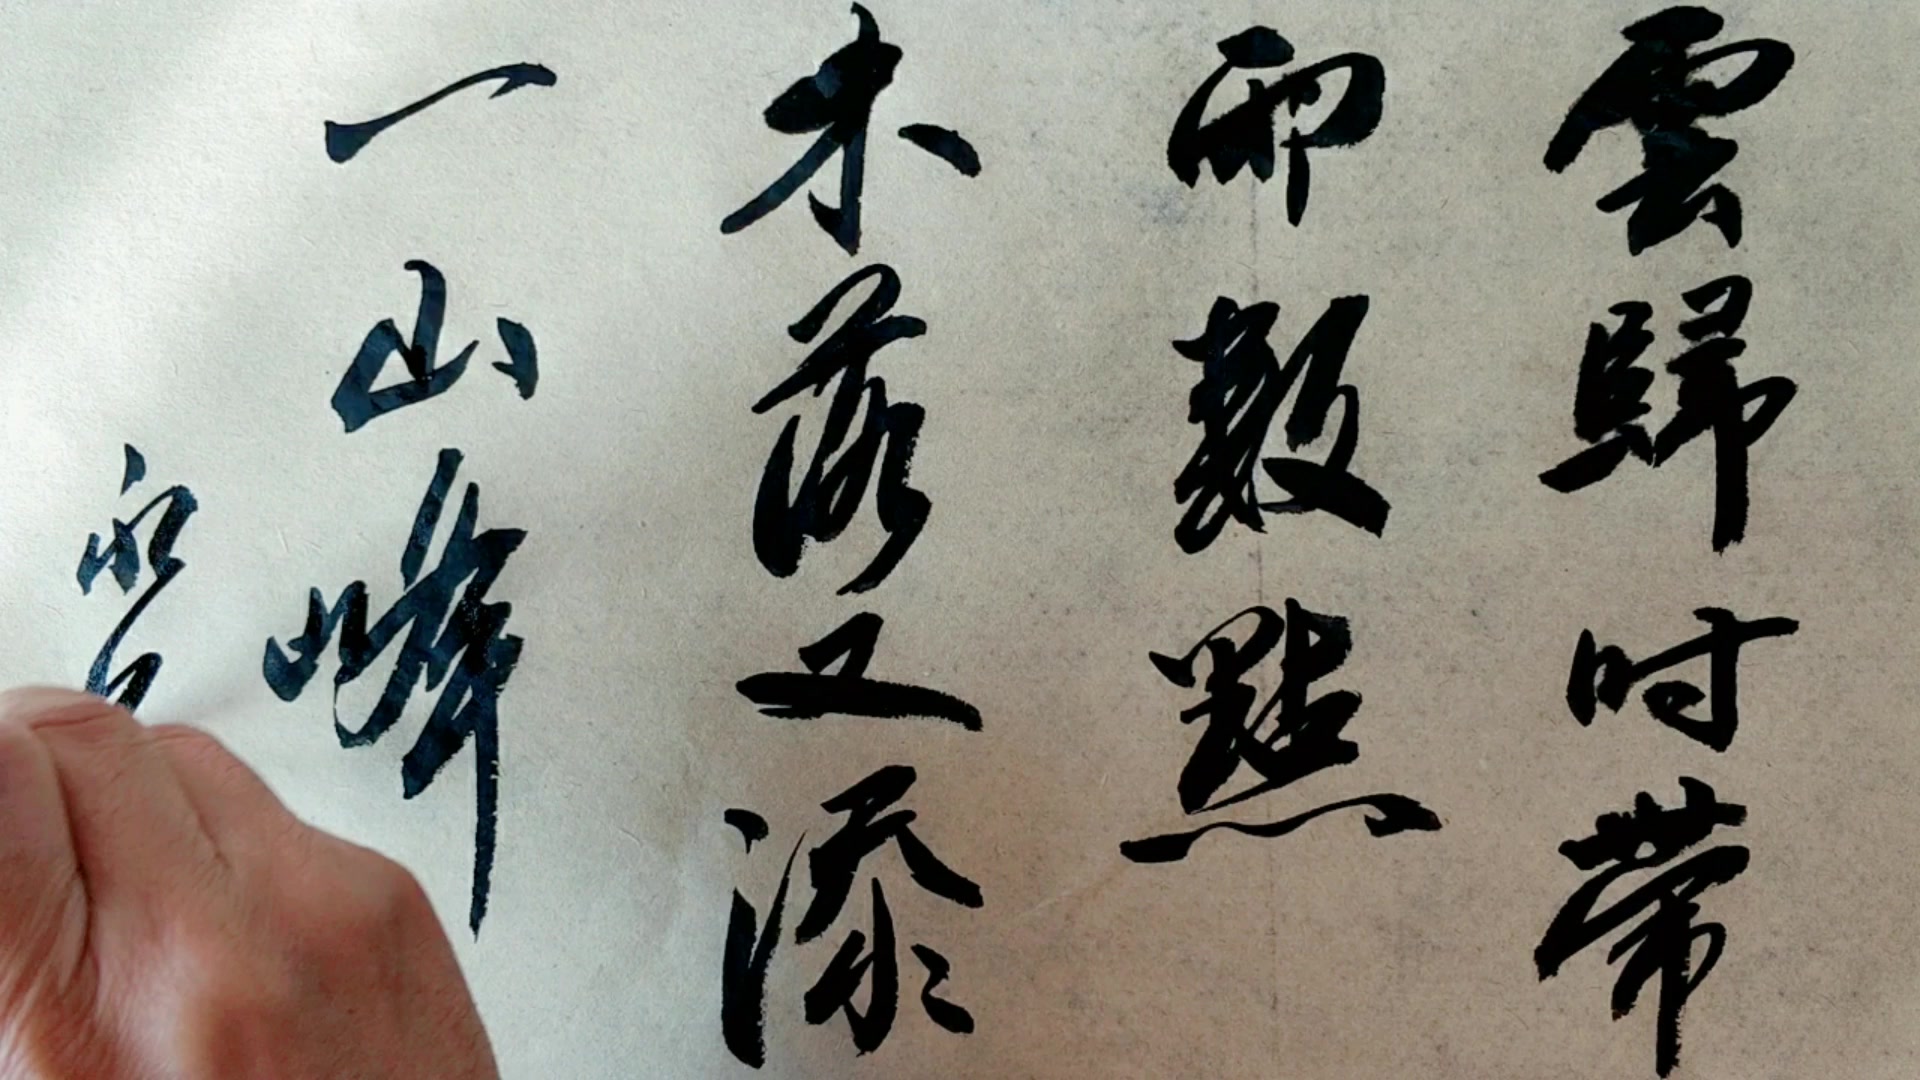 雲歸时帶
雨數點
木落又添
一山峰
永